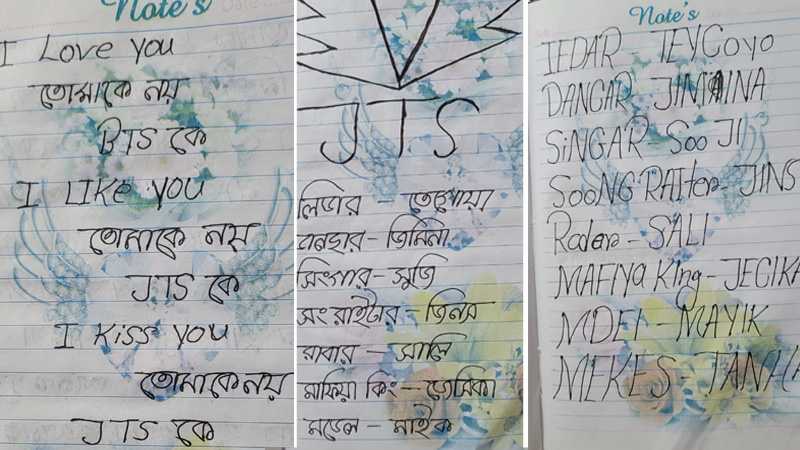 Note's
I Love you
তোমাকে নয়
BTS কে
I LIKe YOU
তোমাকে নয়
JTS কে
I Kiss YOU
তোমাকে নয়
JTS কে
JTS
লিডার - তেগোয়া
ডানছার - জিমিনা
সিংগার - সুজি
সং রাইটার - জিনস
রাবার - সালি
মাফিয়া কিং - জেসিকা
মডেল - মাইক
Note's
IEDAR - TEYGoyo
DANGAR JIMAINA
SiNGAR - Soo JI
SooNG RAITer - JINS
Rader - SALI
MAFIYa King - JECIKA
MDEl - MAYIK
MEKES - TANHA